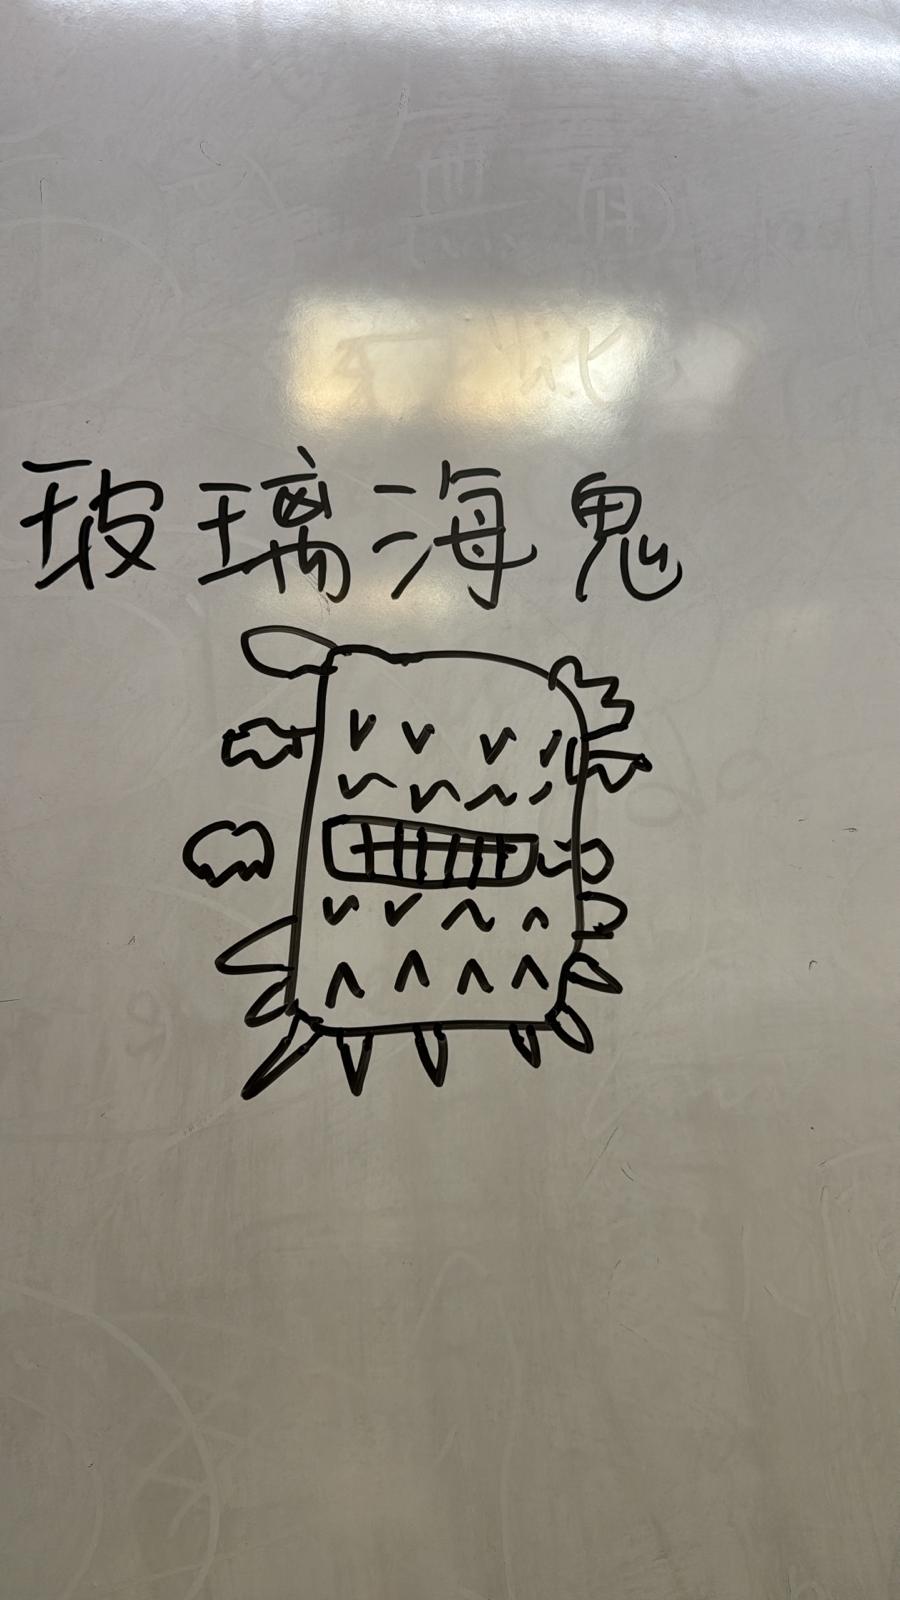 玻璃海鬼